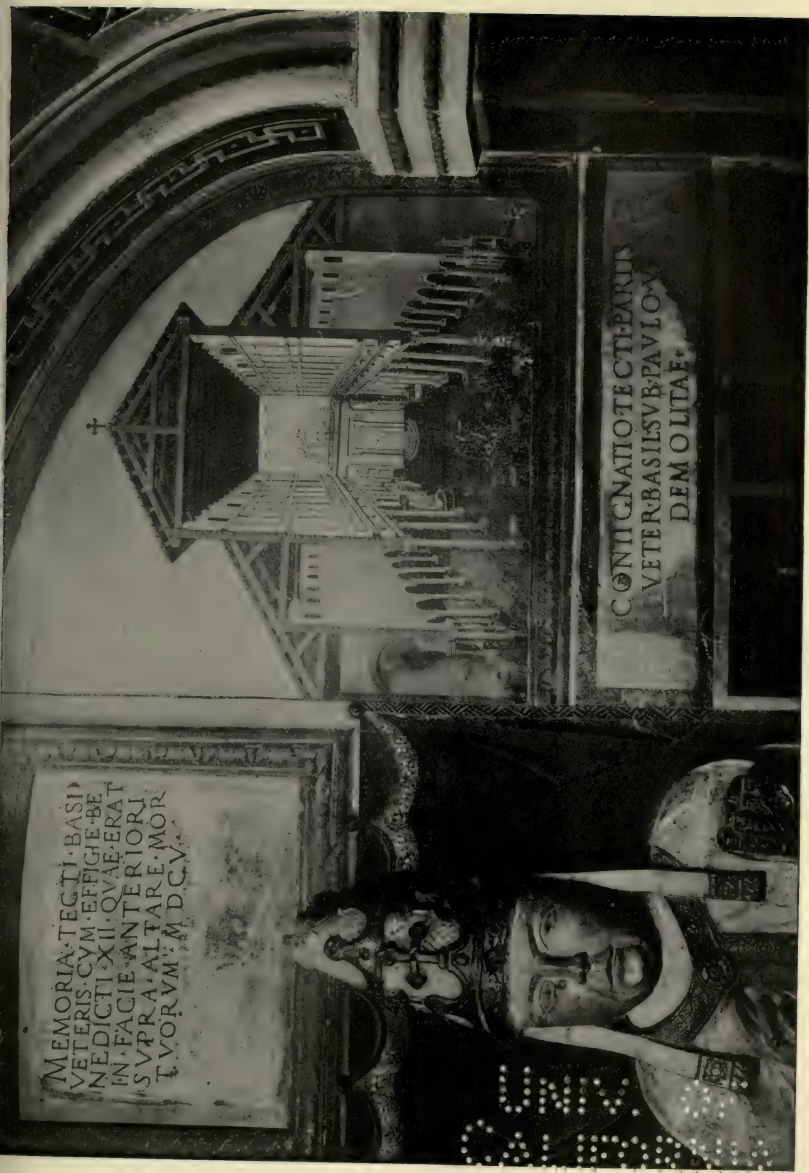 MEMORIA·TECTI·BASI
VETERIS·CVM·EFFIGIE·BE
NEDICTI·XII·QVAE·ERAT
IN·FACIE·ANTERIORI
SVPRA·ALTARE·MOR
TVORVM·M·DC·V·
CONTIGNATIO·TECTI·PARTIS
VETER·BASIL·SVB·PAVLO·V
DEMOLITAE·
UNIV. OF
CALIFORNIA